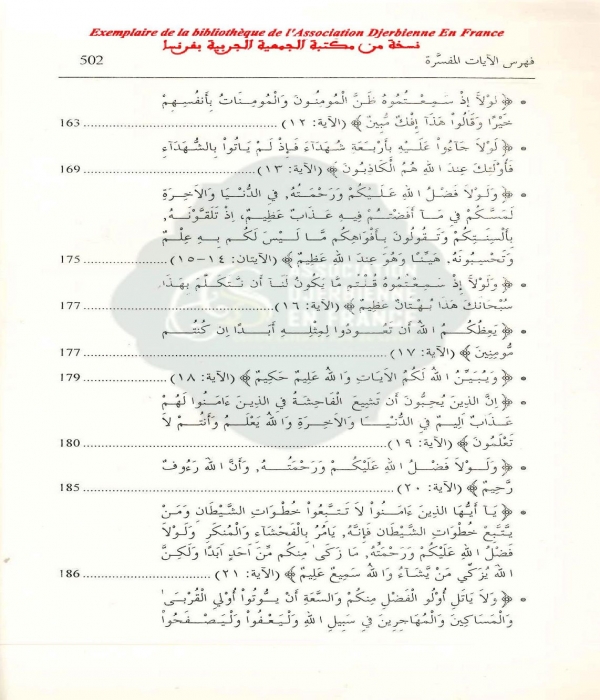 Exemplaire de la bibliothèque de l'Association Djerbienne En France
نسخة من مكتبة الجمعية الجربية بفرنسا
فهرس الآيات المفسَّرة 502
• ﴿ لَوْلَآ إِذْ سَمِعْتُمُوهُ ظَنَّ الْمُومِنُونَ وَالْمُومِنَاتُ بِأَنفُسِهِمْ
خَيْرًا وَقَالُواْ هَذَآ إِفْكٌ مُّبِينٌ ﴾ (الآية: ١٢) 163
• ﴿ لَوْلَا جَآءُو عَلَيْهِ بِأَرْبَعَةِ شُهَدَآءَ فَإِذْ لَمْ يَاتُواْ بِالشُّهَدَآءِ
فَأُوْلَئِكَ عِندَ اللهِ هُمُ الْكَاذِبُونَ ﴾ (الآية: ١٣) 169
• ﴿ وَلَوْلَا فَضْلُ اللهِ عَلَيْكُمْ وَرَحْمَتُهُ, فِي الدُّنْيَا وَالَاخِرَةِ
لَمَسَّكُمْ فِي مَآ أَفَضْتُمْ فِيهِ عَذَابٌ عَظِيمٌ، إِذْ تَلَقَّوْنَهُ,
بِأَلْسِنَتِكُمْ وَتَقُولُونَ بِأَفْوَاهِكُم مَّا لَيْسَ لَكُم بِهِ عِلْمٌ
وَتَحْسِبُونَهُ, هَيِّنًا وَهُوَ عِندَ اللهِ عَظِيمٌ ﴾ (الآيتان: ١٤-١٥) 175
• ﴿ وَلَوْلَآ إِذْ سَمِعْتُمُوهُ قُلْتُم مَّا يَكُونُ لَنَآ أَن نَّتَكَلَّمَ بِهَذَا
سُبْحَانَكَ هَذَا بُهْتَانٌ عَظِيمٌ ﴾ (الآية: ١٦) 177
• ﴿ يَعِظُكُمُ اللهُ أَن تَعُودُواْ لِمِثْلِهِ أَبَدًا اِن كُنتُم
مُّومِنِينَ ﴾ (الآية: ١٧) 177
• ﴿ وَيُبَيِّنُ اللهُ لَكُمُ الَايَاتِ وَاللهُ عَلِيمٌ حَكِيمٌ ﴾ (الآية: ١٨) 179
• ﴿ إِنَّ الذِينَ يُحِبُّونَ أَن تَشِيعَ الْفَاحِشَةُ فِي الذِينَ ءَامَنُواْ لَهُمْ
عَذَابٌ اَلِيمٌ فِي الدُّنْيَا وَالَاخِرَةِ وَاللهُ يَعْلَمُ وَأَنتُمْ لَا
تَعْلَمُونَ ﴾ (الآية: ١٩) 180
• ﴿ وَلَوْلَا فَضْلُ اللهِ عَلَيْكُمْ وَرَحْمَتُهُ, وَأَنَّ اللهَ رَءُوفٌ
رَّحِيمٌ ﴾ (الآية: ٢٠) 185
• ﴿ يَآ أَيُّهَا الذِينَ ءَامَنُواْ لَا تَتَّبِعُواْ خُطْوَاتِ الشَّيْطَانِ وَمَنْ
يَتَّبِعْ خُطْوَاتِ الشَّيْطَانِ فَإِنَّهُ, يَامُرُ بِالْفَحْشَآءِ وَالْمُنكَرِ وَلَوْلَا
فَضْلُ اللهِ عَلَيْكُمْ وَرَحْمَتُهُ, مَا زَكَى مِنكُم مِّنَ اَحَدٍ اَبَدًا وَلَكِنَّ
اللهَ يُزَكِّي مَنْ يَّشَآءُ وَاللهُ سَمِيعٌ عَلِيمٌ ﴾ (الآية: ٢١) 186
• ﴿ وَلَا يَاتَلِ أُوْلُو الْفَضْلِ مِنكُمْ وَالسَّعَةِ أَنْ يُّوتُواْ أُوْلِي الْقُرْبَى
وَالْمَسَاكِينَ وَالْمُهَاجِرِينَ فِي سَبِيلِ اللهِ وَلْيَعْفُواْ وَلْيَصْفَحُواْ
ASSOCIATION
EN FRANCE